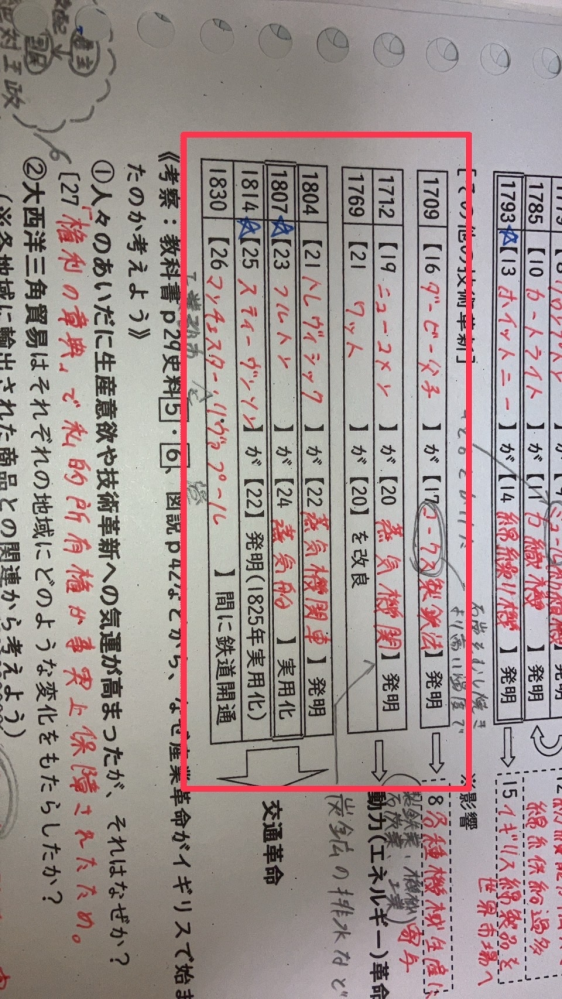 1785 【10 カートライト 】が【11 力織機 】発明
1793 【13 ホイットニー 】が【14 綿繰り機 】発明
15 イギリス綿製品を世界市場へ
[その他の技術革新]
※影響
1709 【16 ダービー父子 】が【17 コークス製鉄法】発明
1712 【19 ニューコメン 】が【20 蒸気機関】発明
1769 【21 ワット 】が【20】を改良
動力(エネルギー)革命
炭鉱の排水など
1804 【21 トレヴィシック 】が【22 蒸気機関車 】発明
1807 【23 フルトン 】が【24 蒸気船 】実用化
1814 【25 スティーヴンソン】が【22】発明(1825年実用化)
1830 【26 マンチェスター・リヴァプール 】間に鉄道開通
交通革命
《考察:教科書p29史料5・6、図説p42などから、なぜ産業革命がイギリスで始ま
たのか考えよう》
①人々のあいだに生産意欲や技術革新への気運が高まったが、それはなぜか?
[27 「権利の章典」で私的所有権が事実上保障されたため。
②大西洋三角貿易はそれぞれの地域にどのような変化をもたらしたか?
(※各地域に輸出された商品との関連から考えよう)